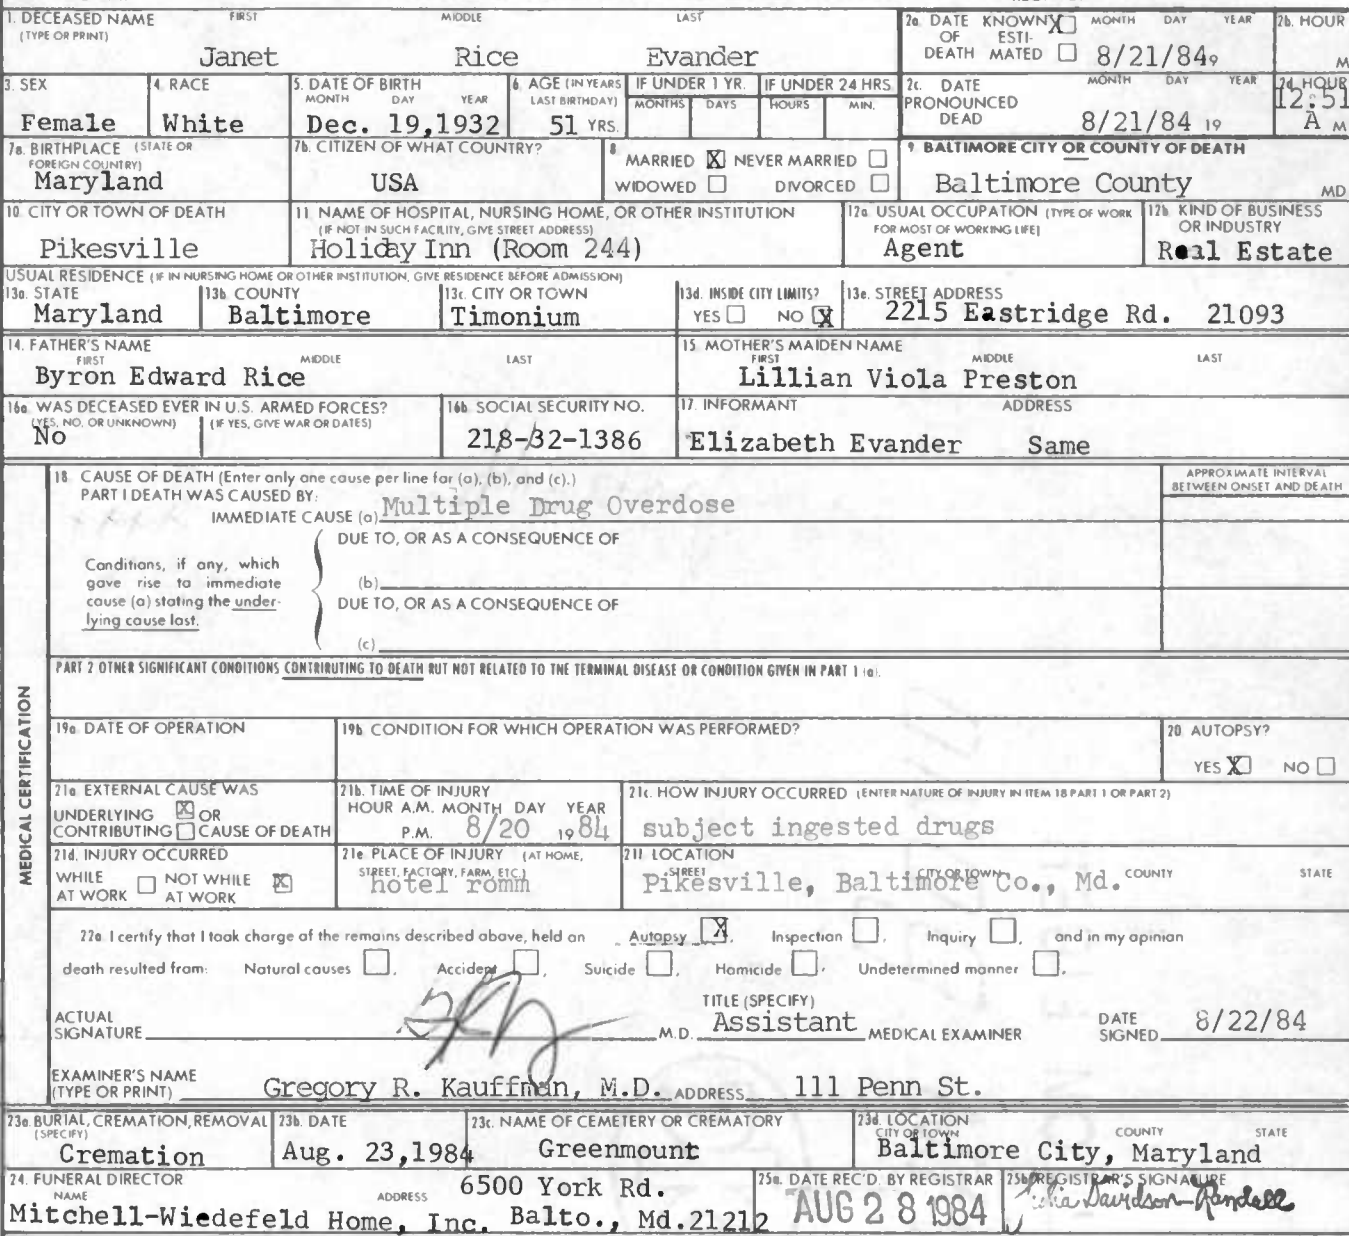 1. DECEASED NAME FIRST MIDDLE LAST
(TYPE OR PRINT)
Janet Rice Evander
2a. DATE KNOWN X MONTH DAY YEAR
OF ESTI-
DEATH MATED 8/21/84 9
2b. HOUR
M
3. SEX
Female
4. RACE
White
5. DATE OF BIRTH
MONTH DAY YEAR
Dec. 19,1932
6. AGE (IN YEARS
LAST BIRTHDAY)
51 YRS.
IF UNDER 1 YR.
MONTHS DAYS
IF UNDER 24 HRS
HOURS MIN.
2c. DATE MONTH DAY YEAR
PRONOUNCED
DEAD 8/21/84 19
2d. HOUR
12:51
A M
7a. BIRTHPLACE (STATE OR
FOREIGN COUNTRY)
Maryland
7b. CITIZEN OF WHAT COUNTRY?
USA
8. MARRIED X NEVER MARRIED
WIDOWED DIVORCED
9. BALTIMORE CITY OR COUNTY OF DEATH
Baltimore County MD
10. CITY OR TOWN OF DEATH
Pikesville
11. NAME OF HOSPITAL, NURSING HOME, OR OTHER INSTITUTION
(IF NOT IN SUCH FACILITY, GIVE STREET ADDRESS)
Holiday Inn (Room 244)
12a. USUAL OCCUPATION (TYPE OF WORK
FOR MOST OF WORKING LIFE)
Agent
12b. KIND OF BUSINESS
OR INDUSTRY
Real Estate
USUAL RESIDENCE (IF IN NURSING HOME OR OTHER INSTITUTION, GIVE RESIDENCE BEFORE ADMISSION)
13a. STATE
Maryland
13b. COUNTY
Baltimore
13c. CITY OR TOWN
Timonium
13d. INSIDE CITY LIMITS?
YES NO X
13e. STREET ADDRESS
2215 Eastridge Rd. 21093
14. FATHER'S NAME
FIRST MIDDLE LAST
Byron Edward Rice
15. MOTHER'S MAIDEN NAME
FIRST MIDDLE LAST
Lillian Viola Preston
16a. WAS DECEASED EVER IN U.S. ARMED FORCES?
(YES, NO, OR UNKNOWN) (IF YES, GIVE WAR OR DATES)
No
16b. SOCIAL SECURITY NO.
218-32-1386
17. INFORMANT ADDRESS
Elizabeth Evander Same
MEDICAL CERTIFICATION
18. CAUSE OF DEATH (Enter only one cause per line for (a), (b), and (c).)
PART I DEATH WAS CAUSED BY:
IMMEDIATE CAUSE (a) Multiple Drug Overdose
APPROXIMATE INTERVAL
BETWEEN ONSET AND DEATH
DUE TO, OR AS A CONSEQUENCE OF
Conditions, if any, which
gave rise to immediate
cause (a) stating the under-
lying cause last.
(b)
DUE TO, OR AS A CONSEQUENCE OF
(c)
PART 2 OTHER SIGNIFICANT CONDITIONS CONTRIBUTING TO DEATH BUT NOT RELATED TO THE TERMINAL DISEASE OR CONDITION GIVEN IN PART 1 (a).
19a. DATE OF OPERATION
19b. CONDITION FOR WHICH OPERATION WAS PERFORMED?
20. AUTOPSY?
YES X NO
21a. EXTERNAL CAUSE WAS
UNDERLYING X OR
CONTRIBUTING CAUSE OF DEATH
21b. TIME OF INJURY
HOUR A.M. MONTH DAY YEAR
P.M. 8/20 1984
21c. HOW INJURY OCCURRED (ENTER NATURE OF INJURY IN ITEM 18 PART 1 OR PART 2)
subject ingested drugs
21d. INJURY OCCURRED
WHILE NOT WHILE X
AT WORK AT WORK
21e. PLACE OF INJURY (AT HOME,
STREET, FACTORY, FARM, ETC.)
hotel romm
21f. LOCATION
STREET CITY OR TOWN COUNTY STATE
Pikesville, Baltimore Co., Md.
22a. I certify that I took charge of the remains described above, held an Autopsy X, Inspection , Inquiry , and in my opinion
death resulted from: Natural causes , Accident , Suicide , Homicide , Undetermined manner .
ACTUAL
SIGNATURE M.D.
TITLE (SPECIFY)
Assistant MEDICAL EXAMINER
DATE
SIGNED 8/22/84
EXAMINER'S NAME
(TYPE OR PRINT) Gregory R. Kauffman, M.D. ADDRESS 111 Penn St.
23a. BURIAL, CREMATION, REMOVAL
(SPECIFY)
Cremation
23b. DATE
Aug. 23,1984
23c. NAME OF CEMETERY OR CREMATORY
Greenmount
23d. LOCATION
CITY OR TOWN COUNTY STATE
Baltimore City, Maryland
24. FUNERAL DIRECTOR
NAME ADDRESS 6500 York Rd.
Mitchell-Wiedefeld Home, Inc. Balto., Md.21212
25a. DATE REC'D. BY REGISTRAR
AUG 28 1984
25b. REGISTRAR'S SIGNATURE
Julia Davidson-Randall